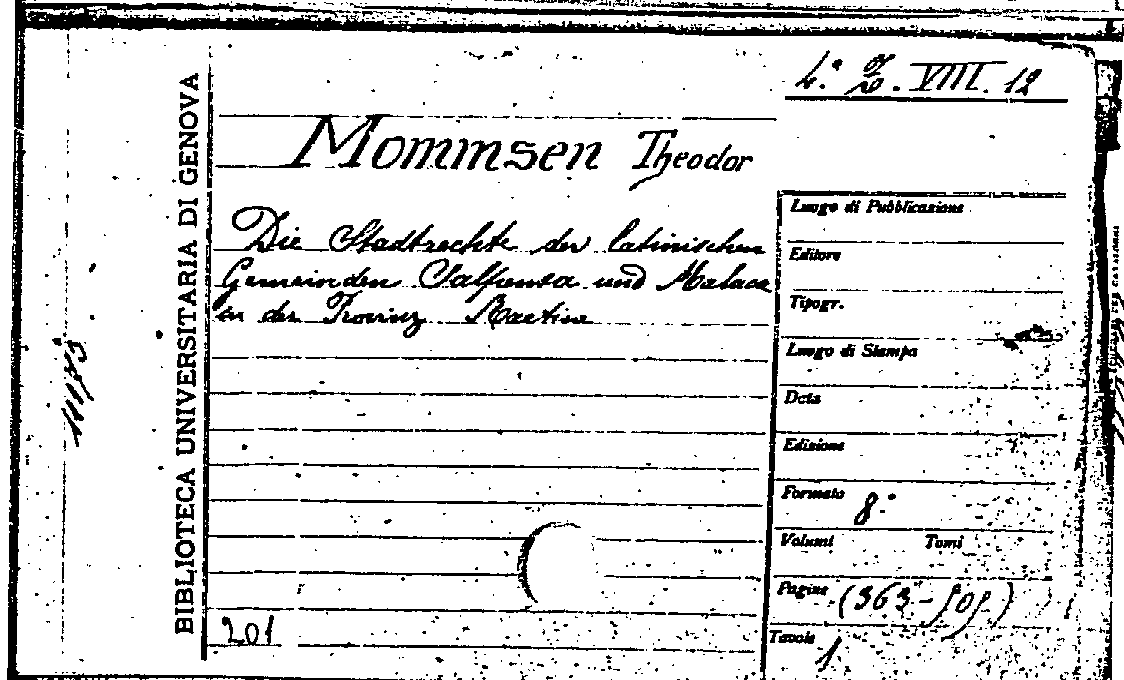 BIBLIOTECA UNIVERSITARIA DI GENOVA
VIII. 12
Mommsen Theodor
Die Stadtrechte der latinischen
Gemeinden Salpensa und Malaca
in der Provinz Baetica
Luogo di Pubblicazione
Editore
Tipogr.
Luogo di Stampa
Data
Edizione
Formato 8°
Volumi Tomi
Pagine (363-505)
Tavole 1
201